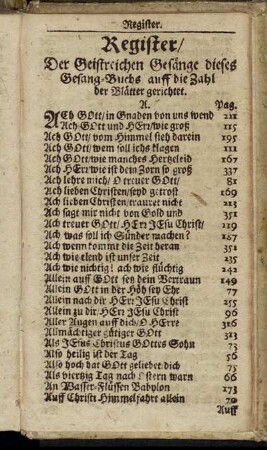 Register.
Register/
Der Geistreichen Gesänge dieses
Gesang-Buchs auff die Zahl
der Blätter gerichtet.
A. Pag.
ACh GOtt/in Gnaden von uns wend 211
Ach GOtt und HErr/wie groß 115
Ach GOtt/vom Himmel sieh darein 195
Ach GOtt/wem soll ichs klagen 111
Ach GOtt/wie manches Hertzeleid 167
Ach HErr wie ist dein Zorn so groß 337
Ach lehre mich/O treuer GOtt/ 81
Ach lieben Christen/seyd getrost 169
Ach lieben Christen/trauret nicht 213
Ach sagt mir nicht von Gold und 351
Ach treuer GOtt/HErr JEsu Christ/ 219
Ach was soll ich Sünder machen? 287
Ach wenn kommt die Zeit heran 351
Ach wie elend ist unser Zeit 235
Ach wie nichtig! ach wie flüchtig 242
Allein auff GOtt setz dein Vertraun 149
Allein GOtt in der Höh sey Ehr 77
Allein nach dir HErr JEsu Christ 255
Allein zu dir/HErr JEsu Christ 96
Aller Augen auff dich/O HErre 316
Allmächtiger gütiger GOtt 323
Als JEsus Christus GOttes Sohn 73
Also heilig ist der Tag 56
Also hoch hat GOtt geliebet dich 75
Als viertzig Tag nach Ostern warn 66
An Wasser-Flüssen Babylon 173
Auff Christi Himmelfahrt allein 70
Auff